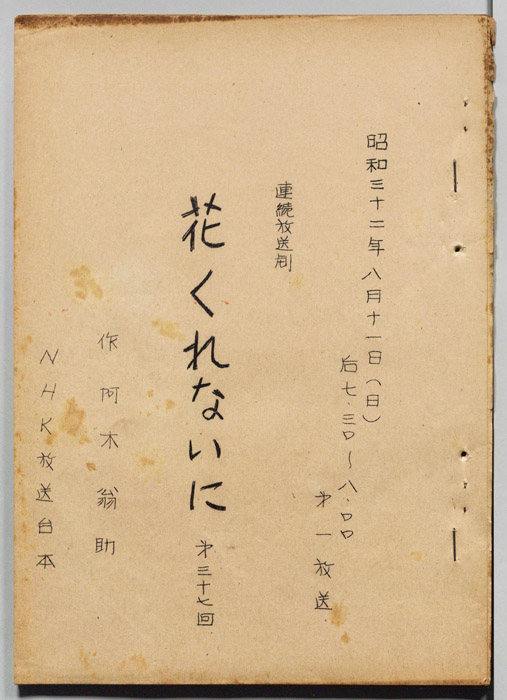 昭和三十二年八月十一日(日)
后七.三〇〜八.〇〇
才一放送
連続放送劇
花くれないに
才三十七回
作阿木翁助
NHK放送台本